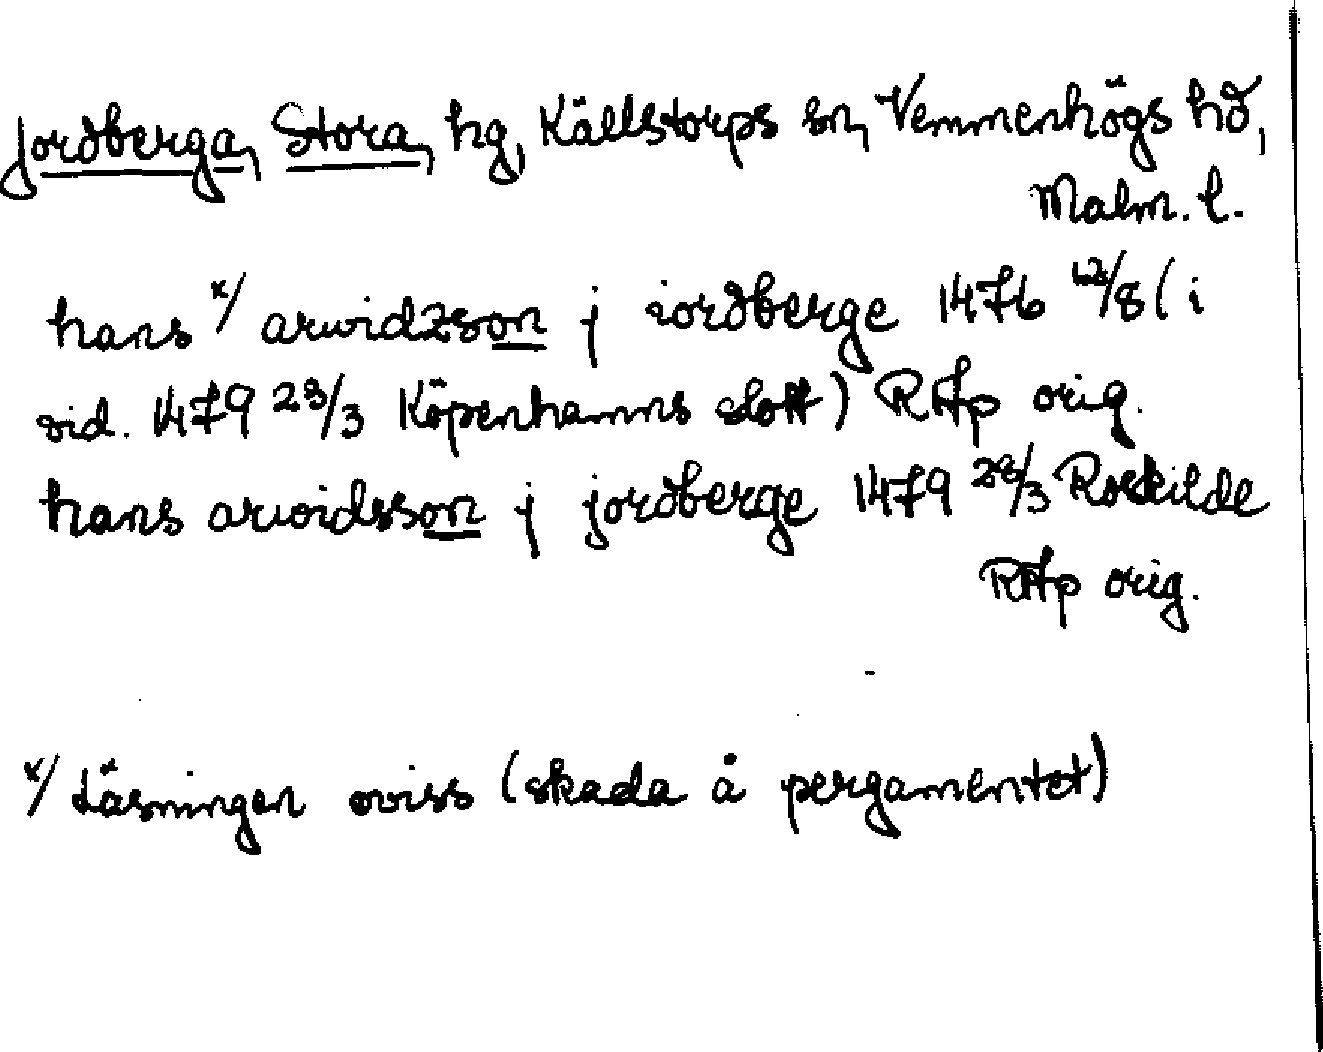 Jordberga, Stora, hg, Källstorps sn, Vemmenhögs hd,
Malm. l.
hans x/ arwidzson j iordberge 1476 12/8 (i
vid. 1479 23/3 Köpenhamns slott) RAp orig.
hans arwidsson j jordberge 1479 28/3 Roskilde
RAp orig.
x/ Läsningen oviss (skada å pergamentet)